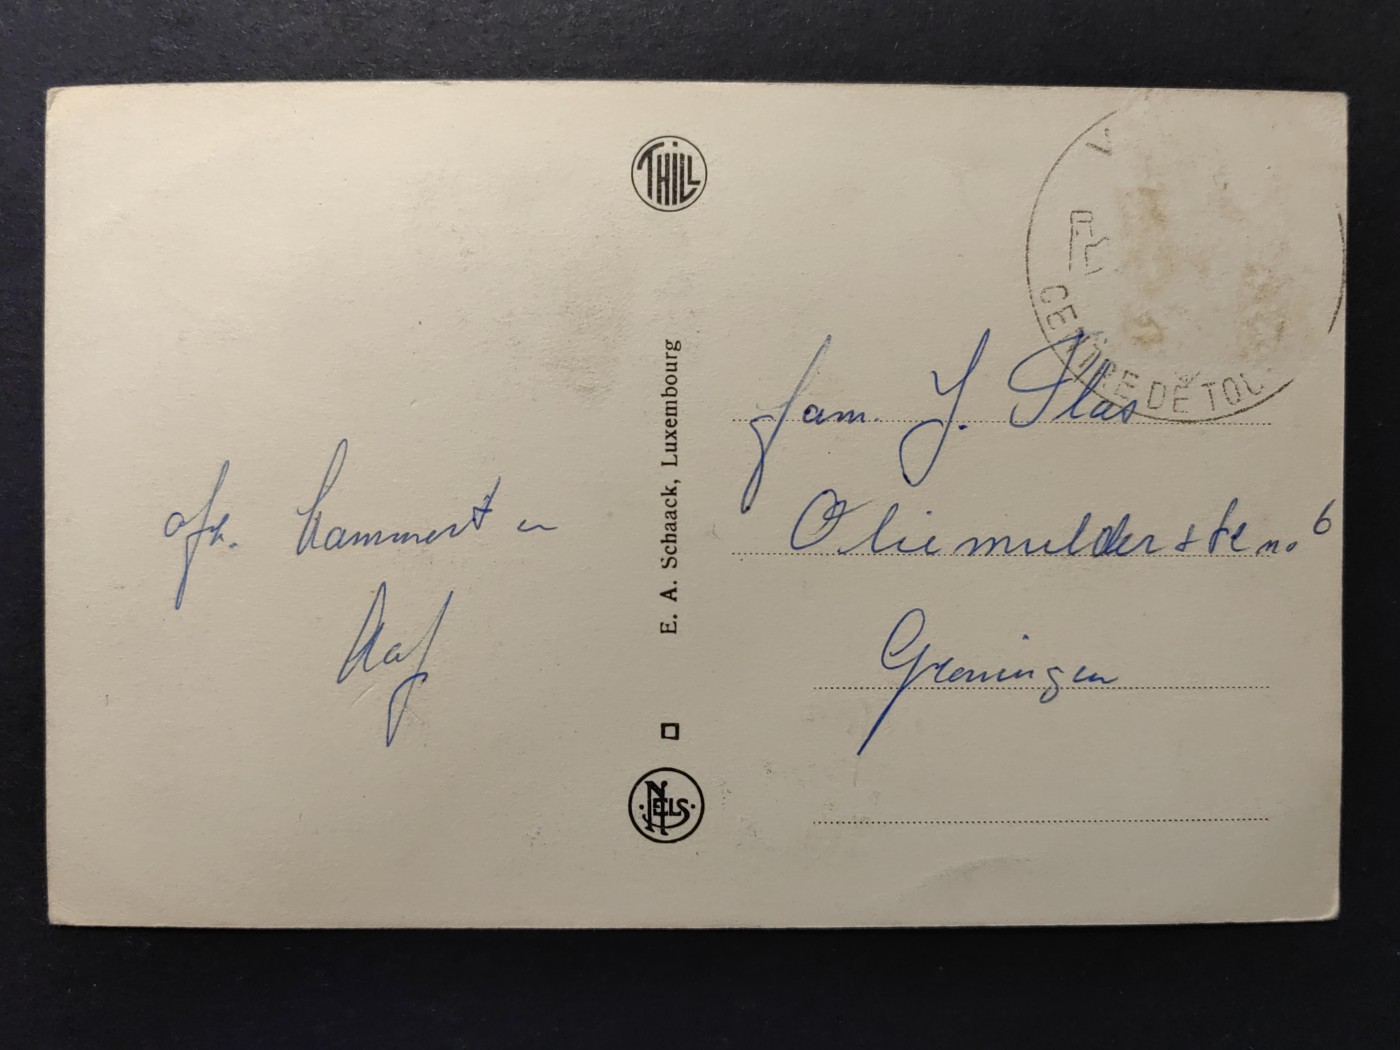 THILL
E. A. Schaack, Luxembourg
NELS
V
CENTRE DE TOU
Fam. J. Plas
Oliemulderstr no. 6
Groningen
afz. Lammert en